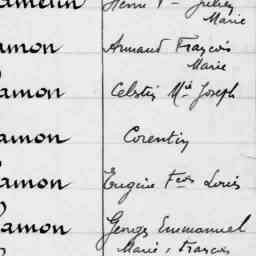 Marie
amon Armand François
Marie
amon Célestin Mie Joseph
amon Corentin
amon Eugène Fçois Louis
amon George Emmanuel
Marie, François